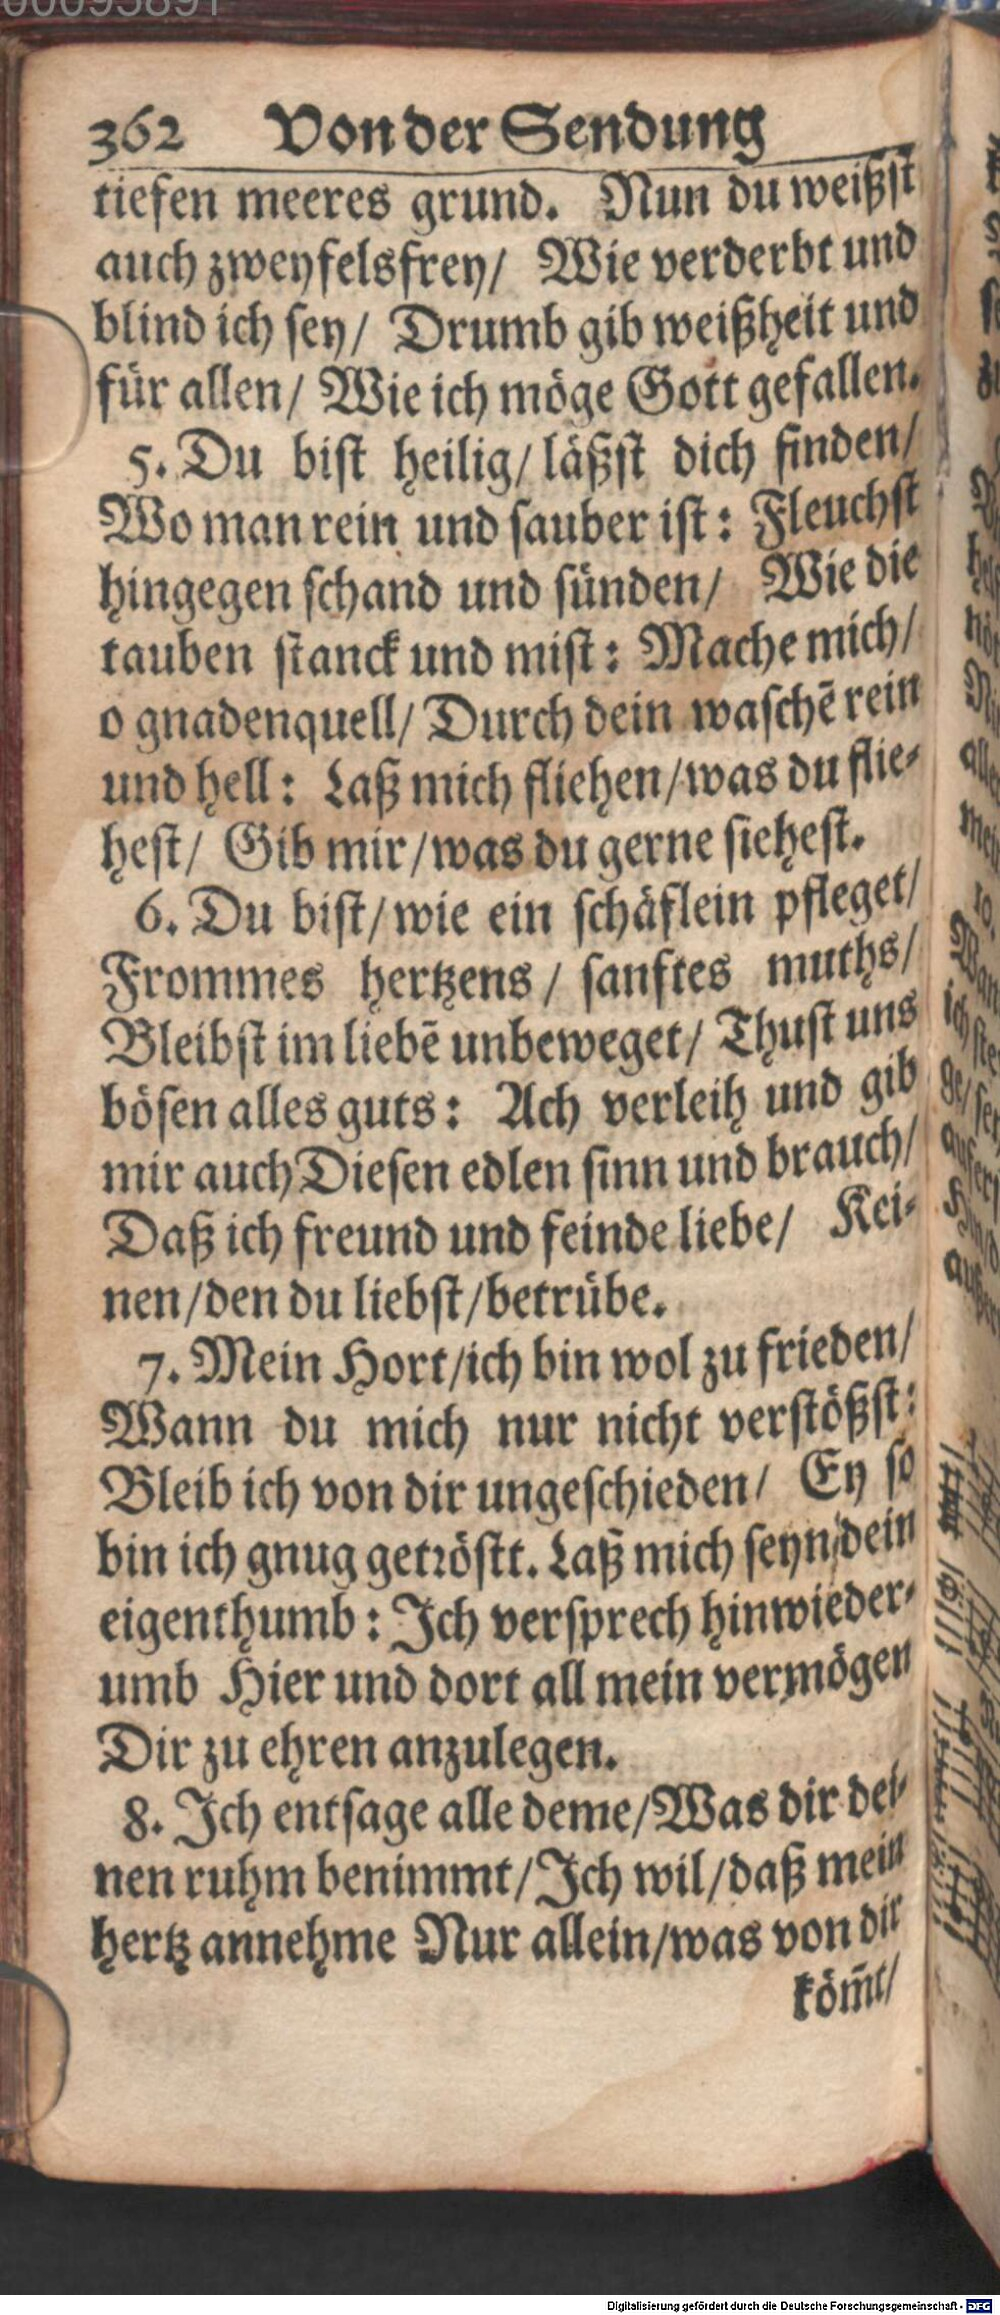 00095891
362 Von der Sendung
tiefen meeres grund. Nun du weißſt
auch zweyfelsfrey/ Wie verderbt und
blind ich ſey/ Drumb gib weißheit und
für allen/ Wie ich möge Gott gefallen.
5. Du bist heilig/ läßſt dich finden/
Wo man rein und ſauber iſt: Fleuchſt
hingegen ſchand und ſünden/ Wie die
tauben ſtanck und miſt: Mache mich/
o gnadenquell/ Durch dein waſchē rein
und hell: Laß mich fliehen/ was du flie-
heſt/ Gib mir/ was du gerne ſieheſt.
6. Du biſt/ wie ein ſchäflein pfleget/
Frommes hertzens/ ſanftes muths/
Bleibſt im liebē unbeweget/ Thuſt uns
böſen alles guts: Ach verleih und gib
mir auch Dieſen edlen ſinn und brauch/
Daß ich freund und feinde liebe/ Kei-
nen/ den du liebſt/ betrübe.
7. Mein Hort/ ich bin wol zu frieden/
Wann du mich nur nicht verſtößſt:
Bleib ich von dir ungeſchieden/ Ey ſo
bin ich gnug getröſtt. Laß mich ſeyn dein
eigenthumb: Ich verſprech hinwieder-
umb Hier und dort all mein vermögen
Dir zu ehren anzulegen.
8. Ich entſage alle deme/ Was dir dei-
nen ruhm benimmt/ Ich wil/ daß mein
hertz annehme Nur allein/ was von dir
köm̃t/
Digitalisierung gefördert durch die Deutsche Forschungsgemeinschaft - DFG